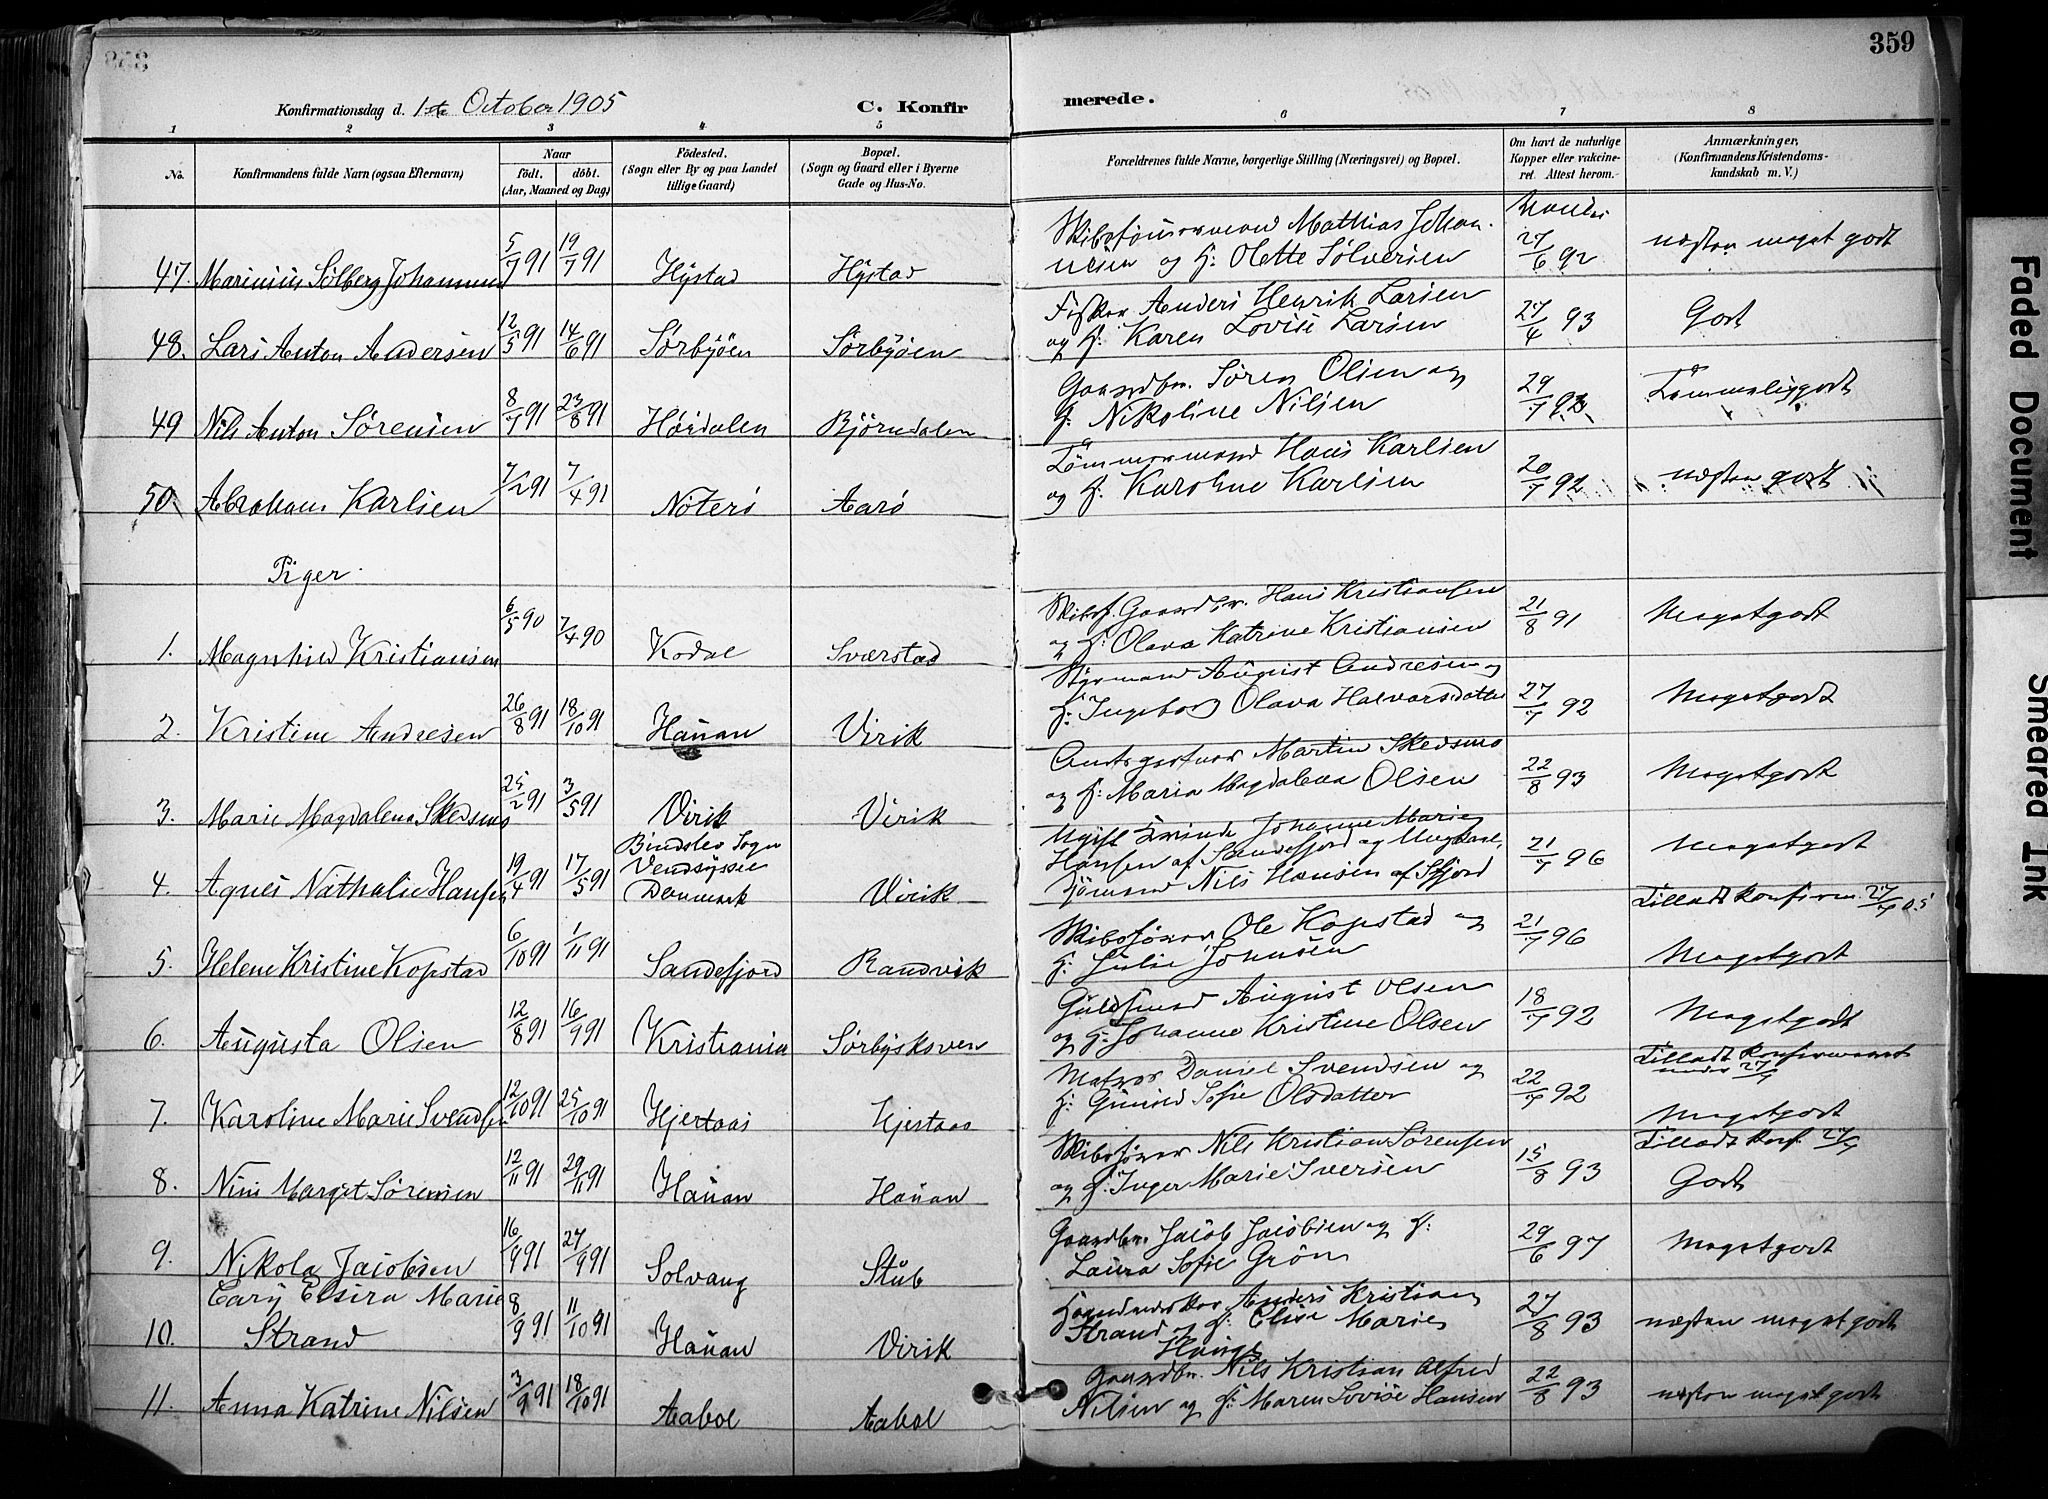 359
Konfirmationsdag d. 1ste October 1905
C. Konfirmerede.
1 2 3 4 5 6 7 8
No.
Konfirmandens fulde Navn (ogsaa Efternavn)
Naar
födt. döbt.
(Aar, Maaned og Dag)
Födested.
(Sogn eller By og paa Landet
tillige Gaard)
Bopæl.
(Sogn og Gaard eller i Byerne
Gade og Hus-No.
Forældrenes fulde Navne, borgerlige Stilling (Næringsvei) og Bopæl.
Om havt de naturlige
Kopper eller vakcine-
ret. Attest herom.
Anmærkninger,
(Konfirmandens Kristendoms-
kundskab m. V.)
47. Marinius Sølberg Johannesen 5/7 91 19/7 91 Hystad Hystad
Mathias Johan-
nesen og H: Olette Sølversen 27/6 92 næsten meget godt
48. Lars Anton Andersen 12/5 91 14/6 91 Sørbyøen Sørbyøen
Fisker Anders Henrik Larsen
og H: Karen Lovise Larsen 27/4 93 Godt
49 Nils Anton Sørensen 8/7 91 23/8 91 Høidalen Bjørndalen
Gaardbr. Søren Olsen og
H. Nikoline Nilsen 29/7 92 Temmeliggodt
50. Abraham Karlsen 7/2 91 7/4 91 Nøterø Aarø
Tømmermand Hans Karlsen
og H: Karoline Karlsen 20/7 92 næsten godt
Piger
1. Magnhild Kristiansen 6/5 90 7/4 90 Kodal Sværstad
Skibsf. Gaardbr. Hans Kristiansen
og H: Olava Katrine Kristiansen 21/8 91 Megetgodt
2. Kristine Andresen 26/8 91 18/10 91 Hauan Virik
Styrmand August Andresen og
H: Ingeborg Olava Halvorsdatter 27/7 92 Megetgodt
3. Marie Magdalena Skedsmo 25/2 91 3/5 91 Virik Virik
Amtsgartner Martin Skedsmo
og H: Maria Magdalena Olsen 22/8 93 Megetgodt
4. Agnes Nathalie Hansen 19/4 91 17/5 91 Bindslev Sogn
Vendsyssel
Danmark Virik
Ugift Kvinde Johanne Marie
Hansen af Sandefjord og Ungkarl,
Sjømand Nils Hansen af Sfjord 21/7 96 Megetgodt
5. Helene Kristine Kopstad 6/10 91 1/11 91 Sandefjord Randvik
Skibsfører Ole Kopstad og
H: Julie Johnsen 21/7 96 Tilladt konfirm. 27/9 05
Megetgodt
6. Augusta Olsen 12/8 91 16/9 91 Kristiania Sørbyskoven
Guldsmed August Olsen
og H: Johanne Kristine Olsen 18/7 92 Megetgodt
7. Karoline Marie Svendsen 12/10 91 25/10 91 Hjertaas Hjertaas
Matros Daniel Svendsen og
H: Gunild Sofie Olsdatter 22/7 92 Tilladt Konfirmeret
under 27/9
Megetgodt
8. Nini Marget Sørensen 12/11 91 29/11 91 Hauan Hauan
Skibsfører Nils Kristian Sørensen
og H: Inger Marie Iversen 15/8 93 Tilladt Konf. 27/9
Godt
9. Nikola Jacobsen 16/9 91 27/9 91 Solvang Stub
Gaardbr. Jacob Jacobsen og H:
Laura Sofie Grøn 29/6 97 Megetgodt
10. Cary Elsira Marie
Strand 8/9 91 11/10 91 Hauan Virik
Haandverker Anders Kristian
Strand og H: Elise Marie
27/8 93 næsten meget godt
11. Anna Katrine Nilsen 3/9 91 18/10 91 Aabol Aabol
Gaardbr. Nils Kristian Alfred
Nilsen og H: Maren Lovise Hansen 22/8 93 næsten meget godt
Faded Document
Smeared Ink